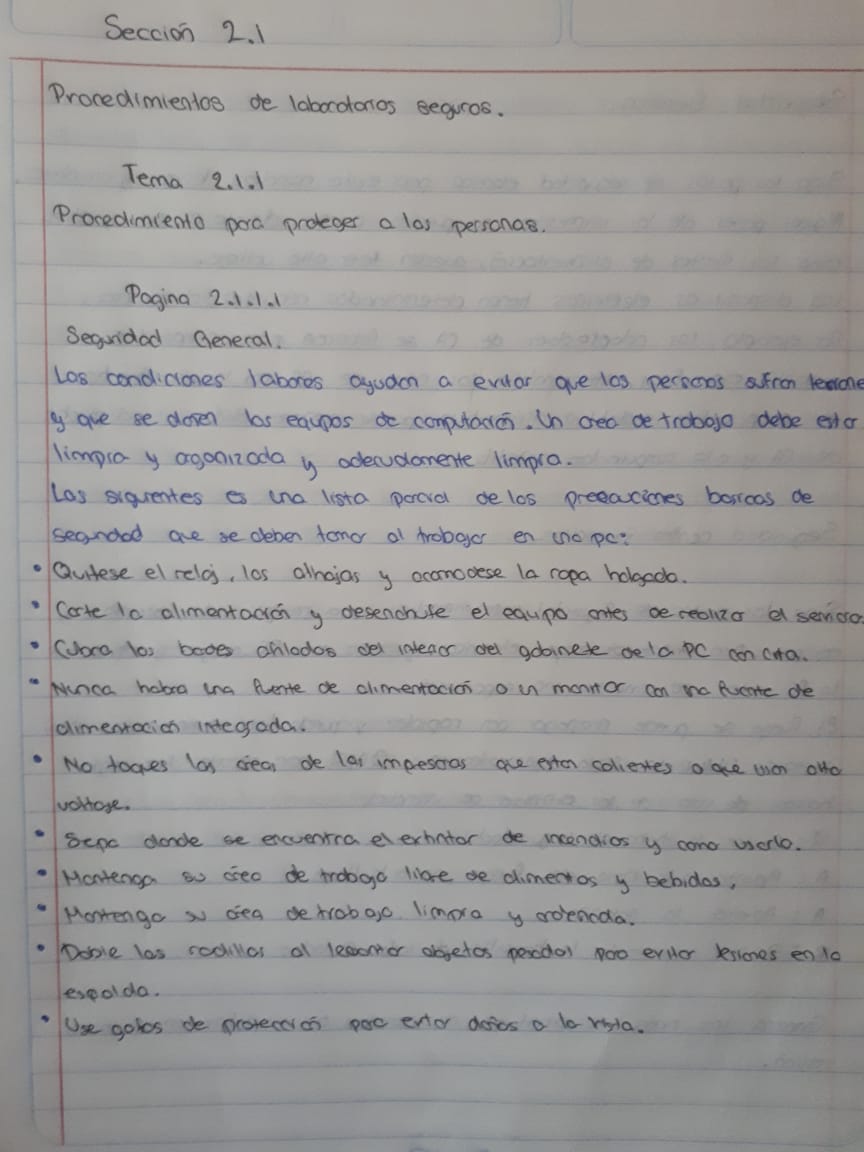 Sección 2.1
Procedimientos de laboratorios seguros.
Tema 2.1.1
Procedimiento para proteger a las personas.
Pagina 2.1.1.1
Seguridad General.
Las condiciones labores ayudan a evitar que las personas sufran lesione
y que se dañen los equipos de computación. Un area de trabajo debe estar
limpia y organizada y adecudamente limpia.
Las siguientes es una lista parcial de los precauciones basicas de
seguridad que se deben tomar al trabajar en una pc:
• Quitese el reloj, las alhajas y acomodese la ropa holgada.
• Corte la alimentación y desenchufe el equipo antes de realizar el servicio.
• Cubra los bodes afilados del interior del gabinete de la PC con cita.
• Nunca habra una fuente de alimentación o un monitor con una fuente de
alimentación integrada.
• No toques las áreas de las impesoras que estan calientes o que usan alto
voltage.
• Sepa donde se encuentra el extintor de incendios y como usarlo.
• Mantenga su área de trabajo libre de alimentos y bebidas.
• Mantenga su área de trabajo limpia y ordenada.
• Doble las rodillas al levantar objetos pesados para evitar lesiones en la
espalda.
• Use gafas de protección para evitar daños a la vista.